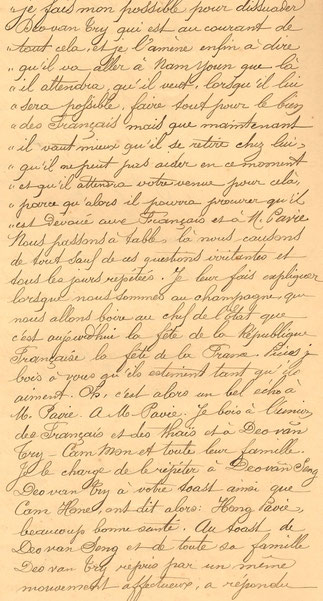 "je fais mon possible pour dissuader
Deo van Try qui est au courant de
"tout cela, et je l'amène enfin à dire
"qu'il va aller à Nam Youn que là
"il attendra, qu'il veut, lorsqu'il lui
"sera possible, faire tout pour le bien
"des Français mais que maintenant
"il vaut mieux qu'il se retire chez lui,
"qu'il ne peut pas aider en ce moment
"et qu'il attendra votre venue pour cela,
"parce qu'alors il pourra procurer qu'il
"est dévoué aux Français et à M. Pavie.
Nous passons à table, là nous causons
de tout sauf de ces questions irritantes et
tous les jours répétées. Je leur fais expliquer
lorsque nous sommes au champagne, que
nous allons boire au chef de l'État que
c'est aujourd'hui la fête de la République
Française la fête de la France. Puis je
bois à vous qu'ils estiment tant qu'ils
aiment. Oh, c'est alors un bel écho à
M. Pavie. A M. Pavie. Je bois à l'union
des Français et des Thaïs et à Deo van
Try - Cam Mon et toute leur famille.
Je le charge de le répéter à Deo van Seng
Deo van Try à votre toast ainsi que
Cam Hone, ont dit alors: Hong Pavie,
beaucoup bonne santé. Au toast de
Deo van Seng et de toute sa famille
Deo van Try repris par un même
mouvement affectueux, a répondu